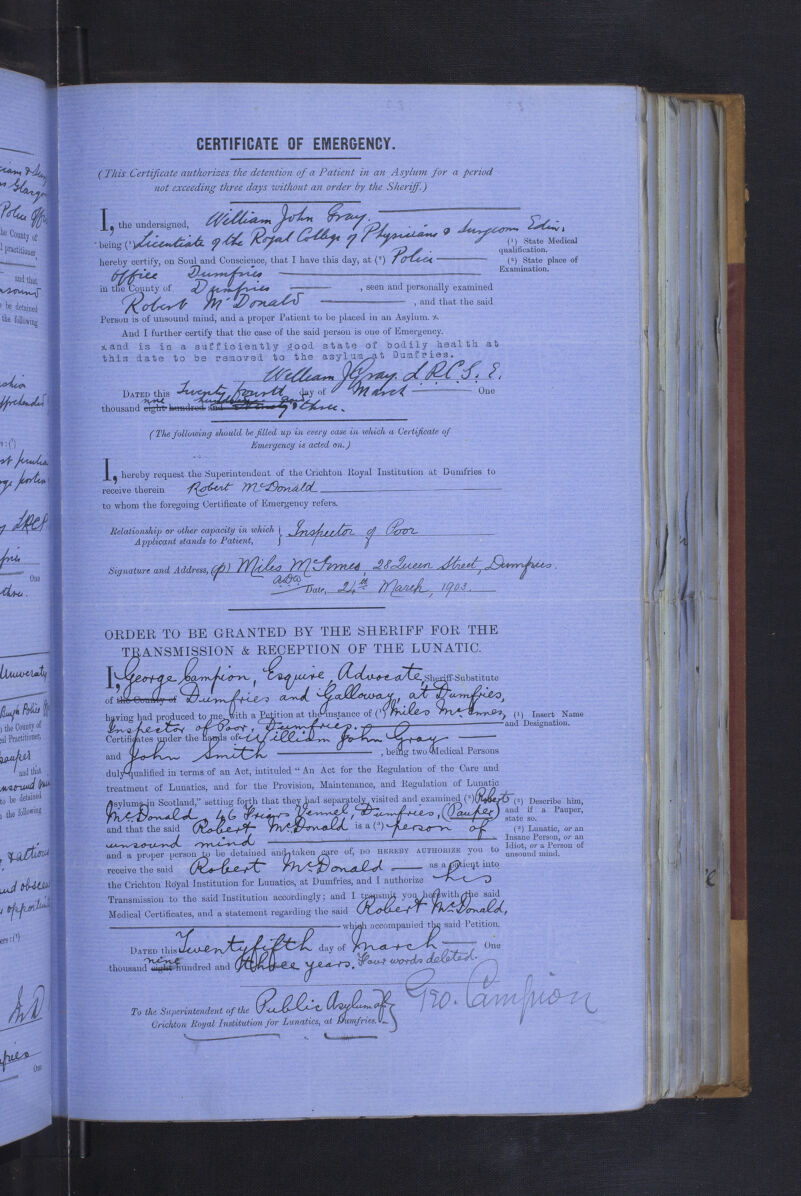 CERTIFICATE OF EMERGENCY.
(This Certificate authorizes the detention of a Patient in an Asylum for a period
not exceeding three days without an order by the Sheriff.)
I, the undersigned, William John Gray.
being (¹) Licentiate of the Royal College of Physicians & Surgeons Edin.
(¹) State Medical
qualification.
hereby certify, on Soul and Conscience, that I have this day, at (²) Police
(²) State place of
Examination.
office Dumfries
in the County of Dumfries, seen and personally examined
Robert McDonald, and that the said
Person is of unsound mind, and a proper Patient to be placed in an Asylum. x
And I further certify that the case of the said person is one of Emergency.
x and is in a sufficiently good state of bodily health at
this date to be removed to the asylum at Dumfries.
William J Gray. L.R.C.S.E.
DATED this Twenty fourth day of March One
thousand eight hundred and nine hundred and three.
(The following should be filled up in every case in which a Certificate of
Emergency is acted on.)
I, hereby request the Superintendent of the Crichton Royal Institution at Dumfries to
receive therein Robert McDonald
to whom the foregoing Certificate of Emergency refers.
Relationship or other capacity in which
Applicant stands to Patient, } Inspector of Poor
Signature and Address, (p) Miles McInnes, 28 Queen Street, Dumfries.
Date, 24th March, 1903.
ORDER TO BE GRANTED BY THE SHERIFF FOR THE
TRANSMISSION & RECEPTION OF THE LUNATIC.
I, George Campion, Esquire, Advocate, Sheriff-Substitute
of the County of Dumfries and Galloway, at Dumfries,
having had produced to me, with a Petition at the instance of (¹) Miles McInnes,
(¹) Insert Name
and Designation.
Inspector of Poor, Dumfries.
Certificates under the hands of William John Gray
and John Smith, being two Medical Persons
duly qualified in terms of an Act, intituled "An Act for the Regulation of the Care and
treatment of Lunatics, and for the Provision, Maintenance, and Regulation of Lunatic
Asylums in Scotland," setting forth that they had separately visited and examined (²) Robert
(²) Describe him,
and if a Pauper,
state so.
McDonald, 46 Friars Vennel, Dumfries, (Pauper)
and that the said Robert McDonald is a (³) person of
(³) Lunatic, or an
Insane Person, or an
Idiot, or a Person of
unsound mind.
unsound mind
and a proper person to be detained and taken care of, DO HEREBY AUTHORIZE you to
receive the said Robert McDonald as a patient into
the Crichton Royal Institution for Lunatics, at Dumfries, and I authorize his
Transmission to the said Institution accordingly; and I transmit you herewith the said
Medical Certificates, and a statement regarding the said Robert McDonald,
which accompanied the said Petition.
DATED this Twentyfifth day of March One
thousand eight nine hundred and three years. Four words deleted.
Geo. Campion
To the Superintendent of the Public Asylum of
Crichton Royal Institution for Lunatics, at Dumfries.